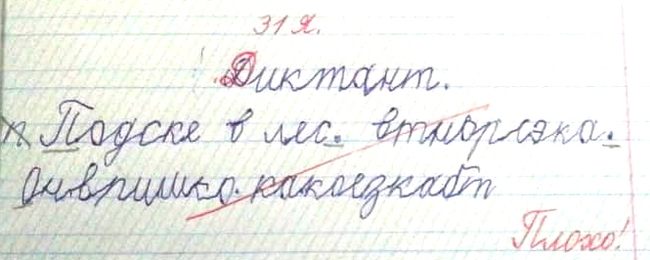 31 Я.
Диктант.
Подске в лес. втморсэка.
Он впишко. какоезкабт
Плохо!